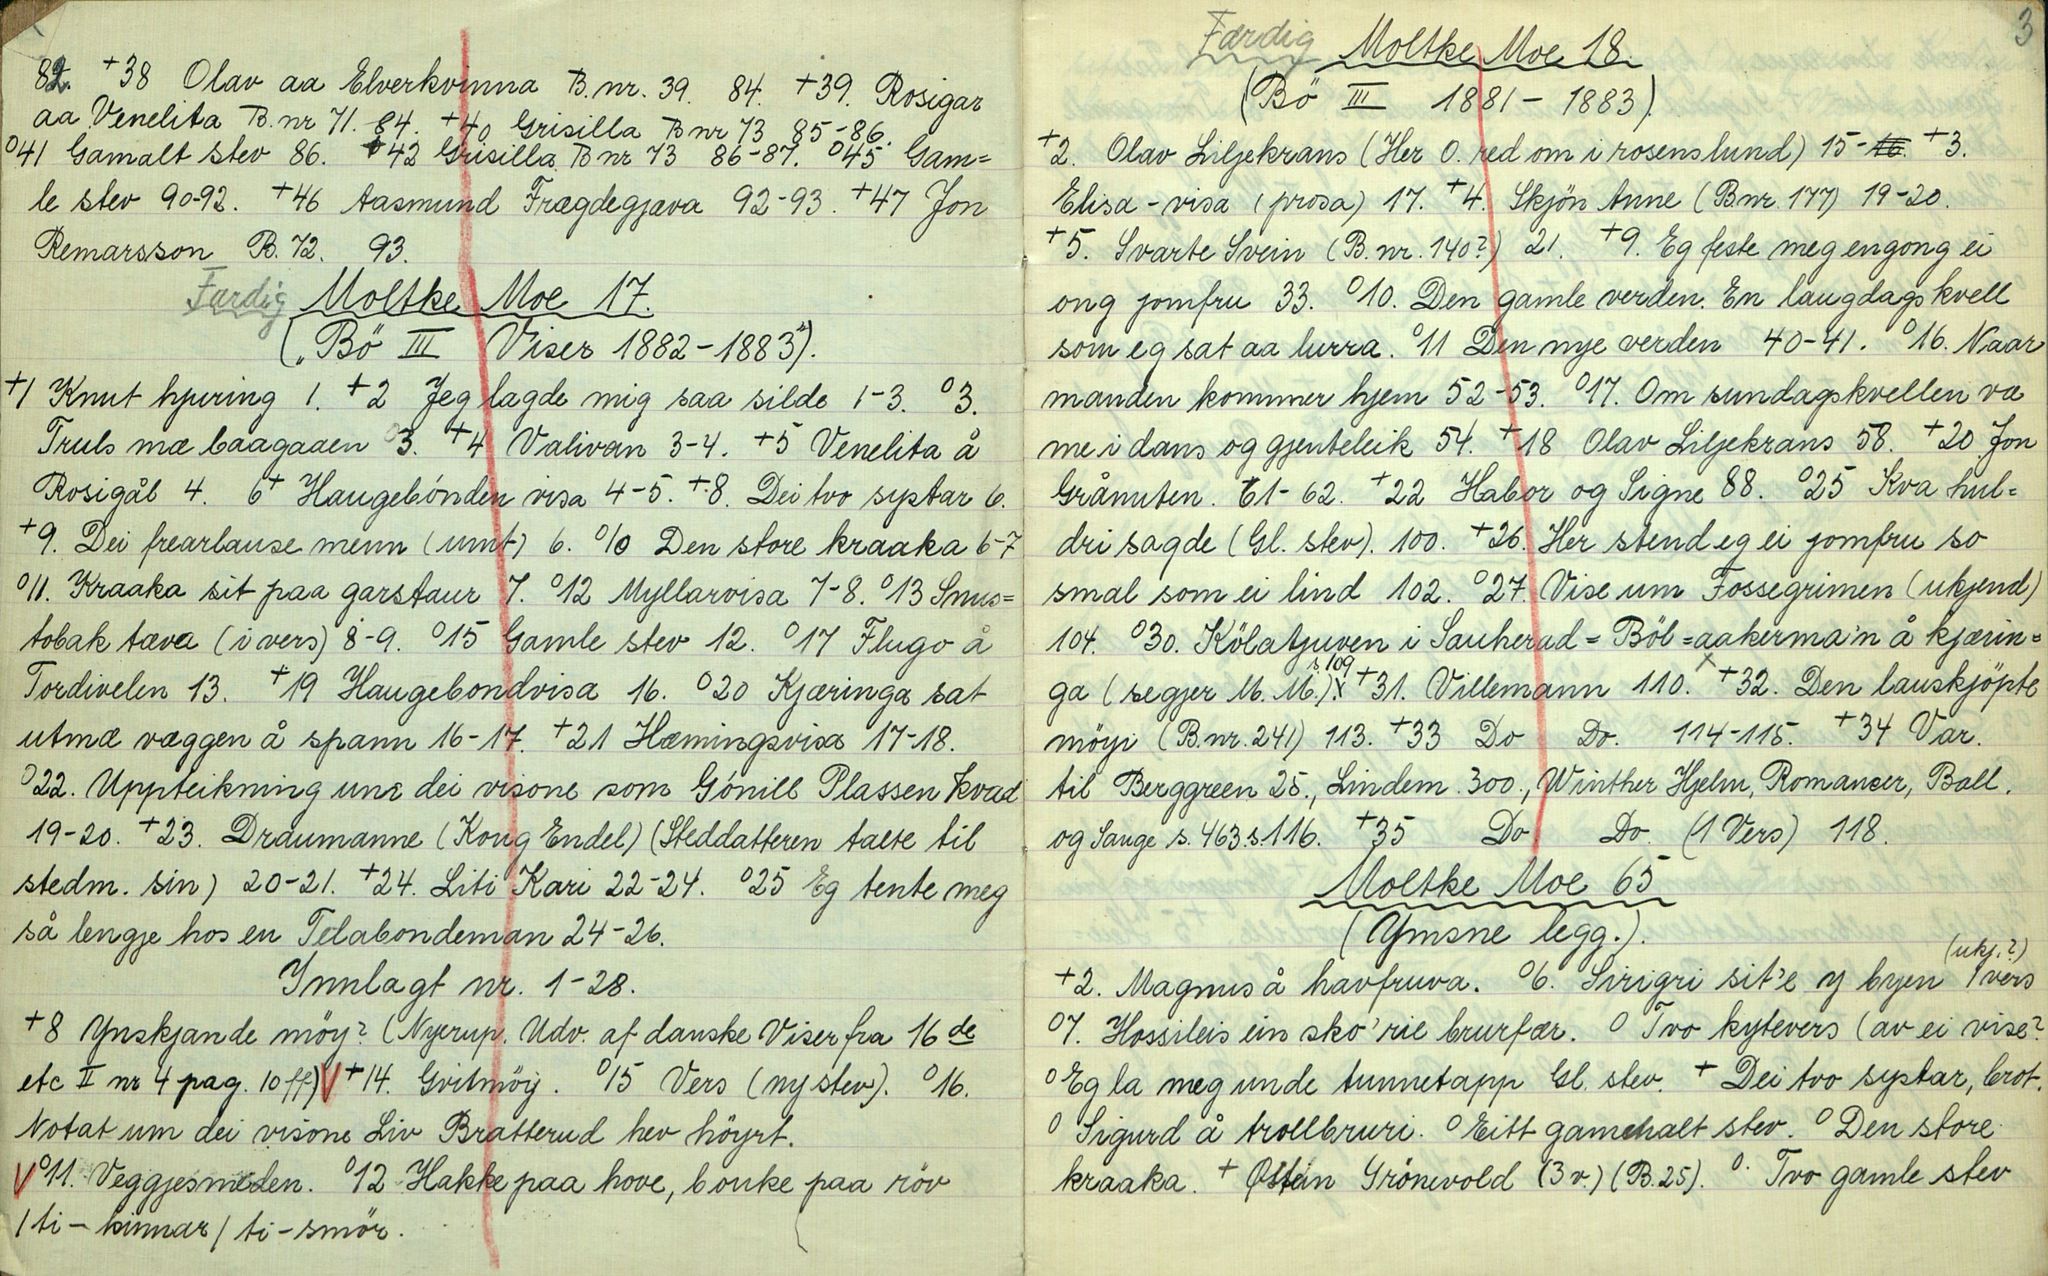 82. +38 Olav aa Elverkvinna B. nr. 39. 84. +39. Rosigar
aa Venelita B. nr 71. 84. +40 Grisilla B nr 73 85-86.
o41 Gamalt stev 86. +42 Grisilla B nr 73 86-87. o45 Gam=
le stev 90-92. +46 Aasmund Frægdegjæva 92-93. +47 Jon
Remarsson B. 72. 93.
Færdig Moltke Moe 17.
(„Bö III Viser 1882-1883").
+1 Knut hjuring 1. +2 Jeg lagde mig saa silde 1-3. o3.
Truls mæ baagaaen 3. +4 Valivan 3-4. +5 Venelita å
Rosigål 4. 6+ Haugebónden visa 4-5. +8. Dei tvo systar 6.
+9. Dei frearlause menn (umt) 6. o10 Den store kraaka 6-7
o11. Kraaka sit paa garstaur 7. o12 Myllarvisa 7-8. o13 Snus=
tobak tæva (i vers) 8-9. o15 Gamle stev 12. o17 Flugo å
Tordivelen 13. +19 Haugebondvisa 16. o20 Kjæringa sat
utmæ væggen å spann 16-17. +21 Hæmingsvisa 17-18.
o22. Uppteikning um dei visone som Gónill Plassen kvad
19-20. +23. Draumanne (Kong Endel) (Steddatteren talte til
stedm. sin) 20-21. +24. Liti Kari 22-24. o25 Eg tente meg
så lengje hos en Telabondeman 24-26.
Innlagt nr. 1-28.
+8 Ynskjande möy? (Nyerup. Udv. af danske Viser fra 16de
etc II nr 4 pag. 10 ff) V +14. Gvitmöiy. o15 Vers (ny stev). o16.
Notat um dei visone Liv Bratterud hev höyrt.
V o11. Veggjesmeden. o12 Hakke paa hove, bouke paa röv
/ ti - kinnar / ti - smör.
3
Færdig Moltke Moe 18.
(Bö III 1881-1883).
+2. Olav Liljekrans (Her O. red om i rosenslund) 15-16. +3.
Elisa-visa (prosa) 17. +4. Skjön Anne (B nr. 177) 19-20.
+5. Svarte Svein (B. nr. 140?) 21. +9. Eg feste meg engong ei
ong jomfru 33. o10. Den gamle verden. En laugdagskvell
som eg sat aa lurra. o11 Den nye verden 40-41. o16. Naar
manden kommer hjem 52-53. o17. Om sundagskvellen va
me i dans og gjenteleik 54. +18 Olav Liljekrans 58. +20. Jon
Grånuten. 61-62. +22 Habor og Signe 88. o25 Kva hul=
dri sagde (Gl. stev). 100. +26. Her stend eg ei jomfru so
smal som ei lind 102. o27. Vise um Fossegrimen (ukjend)
104. o30. Kölatjuven i Sauherad = Böl=aakerma'n å kjærin=
ga (segjer M. M.) x s 109 +31. Villemann 110. x +32. Den lauskjöpte
möyi (B. nr. 241) 113. +33 Do Do. 114-115. +34 Var.
til Berggreen 25., Lindem. 300., Winther Hjelm, Romancer, Ball.
og Sange s. 463. s. 116. +35 Do Do. (1 Vers) 118.
Moltke Moe 65
(Ymsne legg.).
+2. Magnus å havfruva. o6. Sirigri sit'e y byen 1 vers (ukj.?)
o7. Hossileis ein sko'rie brurfær. o Tvo kytevers (av ei vise?
o Eg la meg unde tunnetapp Gl. stev. + Dei tvo systar, brot.
o Sigurd å trollbruri. o Eitt gamalt stev. o Den store
kraaka. + Østein Grönevold (3 v.) (B. 25). o. Tvo gamle stev